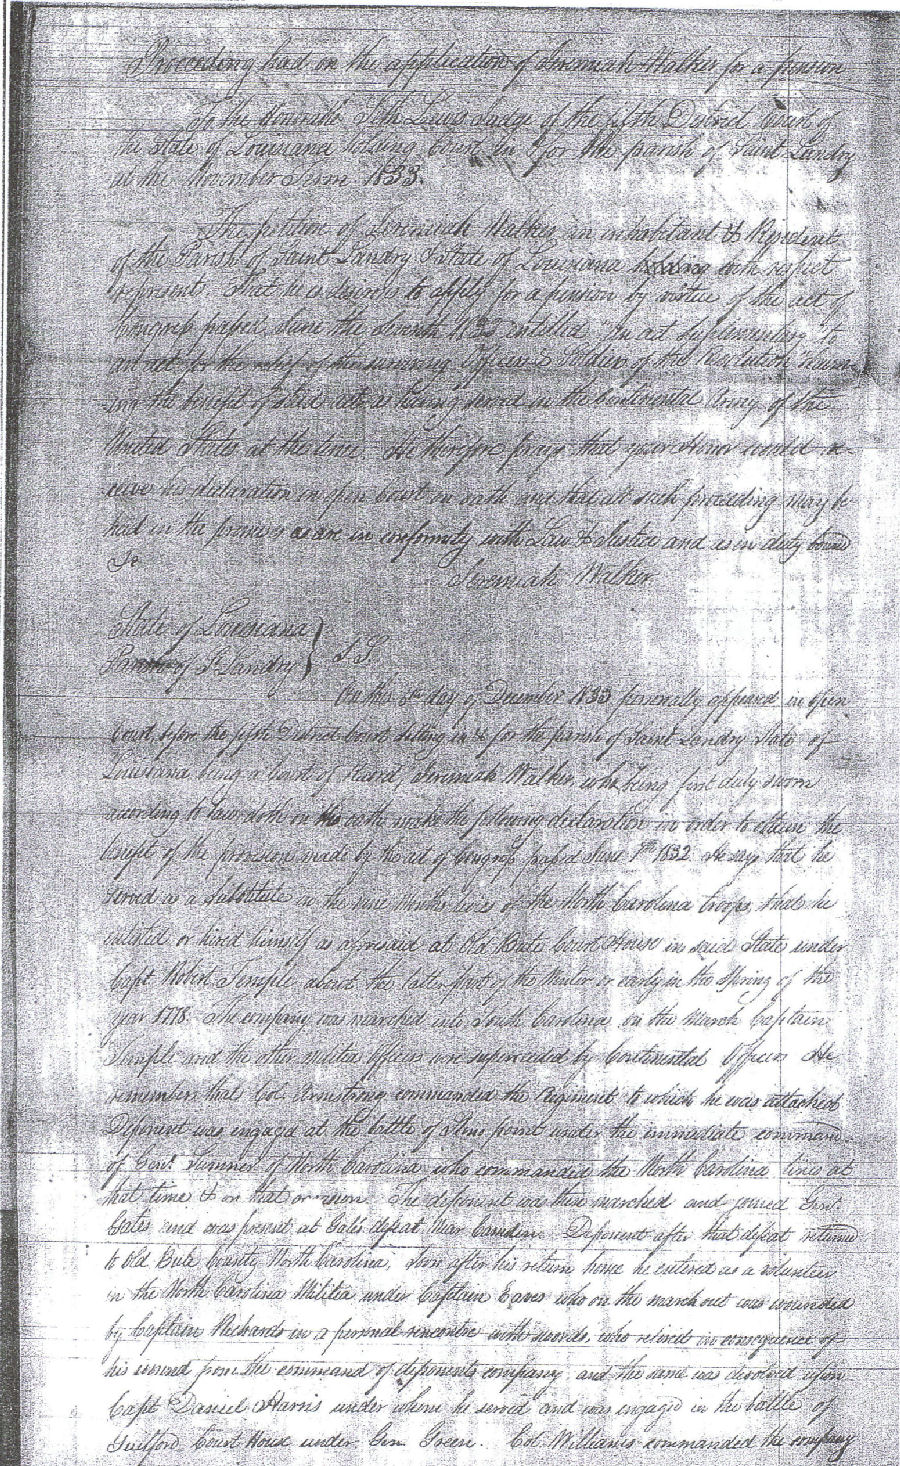 Proceeding had on the application of Jeremiah Walker for a pension
To the Honorable Seth Lewis Judge of the fifth District Court of
the State of Louisiana holding Court in & for the parish of Saint Landry
at the November Term 1833.
The petition of Jeremiah Walker an inhabitant & Resident
of the Parish of Saint Landry & State of Louisiana with respect
represents. That he is desirous to apply for a pension by virtue of the act of
Congress passed June the seventh 1832 entitled An act supplementary to
an act for the relief of the surviving Officers & Soldiers of the Revolution
the benefit of said act as having served in the Continental Army of the
United States at the time. He therefore prays that your Honor would re-
ceive his declaration in open Court on oath and that all such proceeding may be
had in the premises as are in conformity with Law & Justice and as in duty bound
&c.
Jeremiah Walker
State of Louisiana
Parish of St Landry } SS
On this 6th day of December 1833 personally appeared in open
Court before the fifth District Court sitting in & for the parish of Saint Landry State of
Louisiana being a Court of Record, Jeremiah Walker who being first duly sworn
according to law doth on his oath make the following declaration in order to obtain the
benefit of the provision made by the act of Congress passed June 7th 1832. He says that he
served as a substitute in the nine months lines of the North Carolina troops, that he
enlisted or hired himself as aforesaid at Old Bute Court House in said State under
Capt Robin Temple about the latter part of the Winter or early in the Spring of the
year 1778. The company was marched into South Carolina on the march Captain
Temple and the other militia officers were superceded by Continental Officers He
remembers that Col Armstrong commanded the Regiment to which he was attached
Deponent was engaged at the battle of Stono point under the immediate command
of Genl. Sumner of North Carolina who commanded the North Carolina lines at
that time & on that occasion. The deponent was then marched and joined Genl.
Gates and was present at Gates defeat near Camden. Deponent after that defeat returned
to Old Bute County North Carolina, soon after his return home he entered as a volunteer
in the North Carolina Militia under Captain Eaves who on the march out was wounded
by Captain Richards in a personal rencontre with swords, who retired in consequence of
his wound from the command of deponents company and the same was devolved upon
Capt Daniel Harris under whom he served and was engaged in the battle of
Guilford Court House under Gen. Green. Col Williams commanded the company